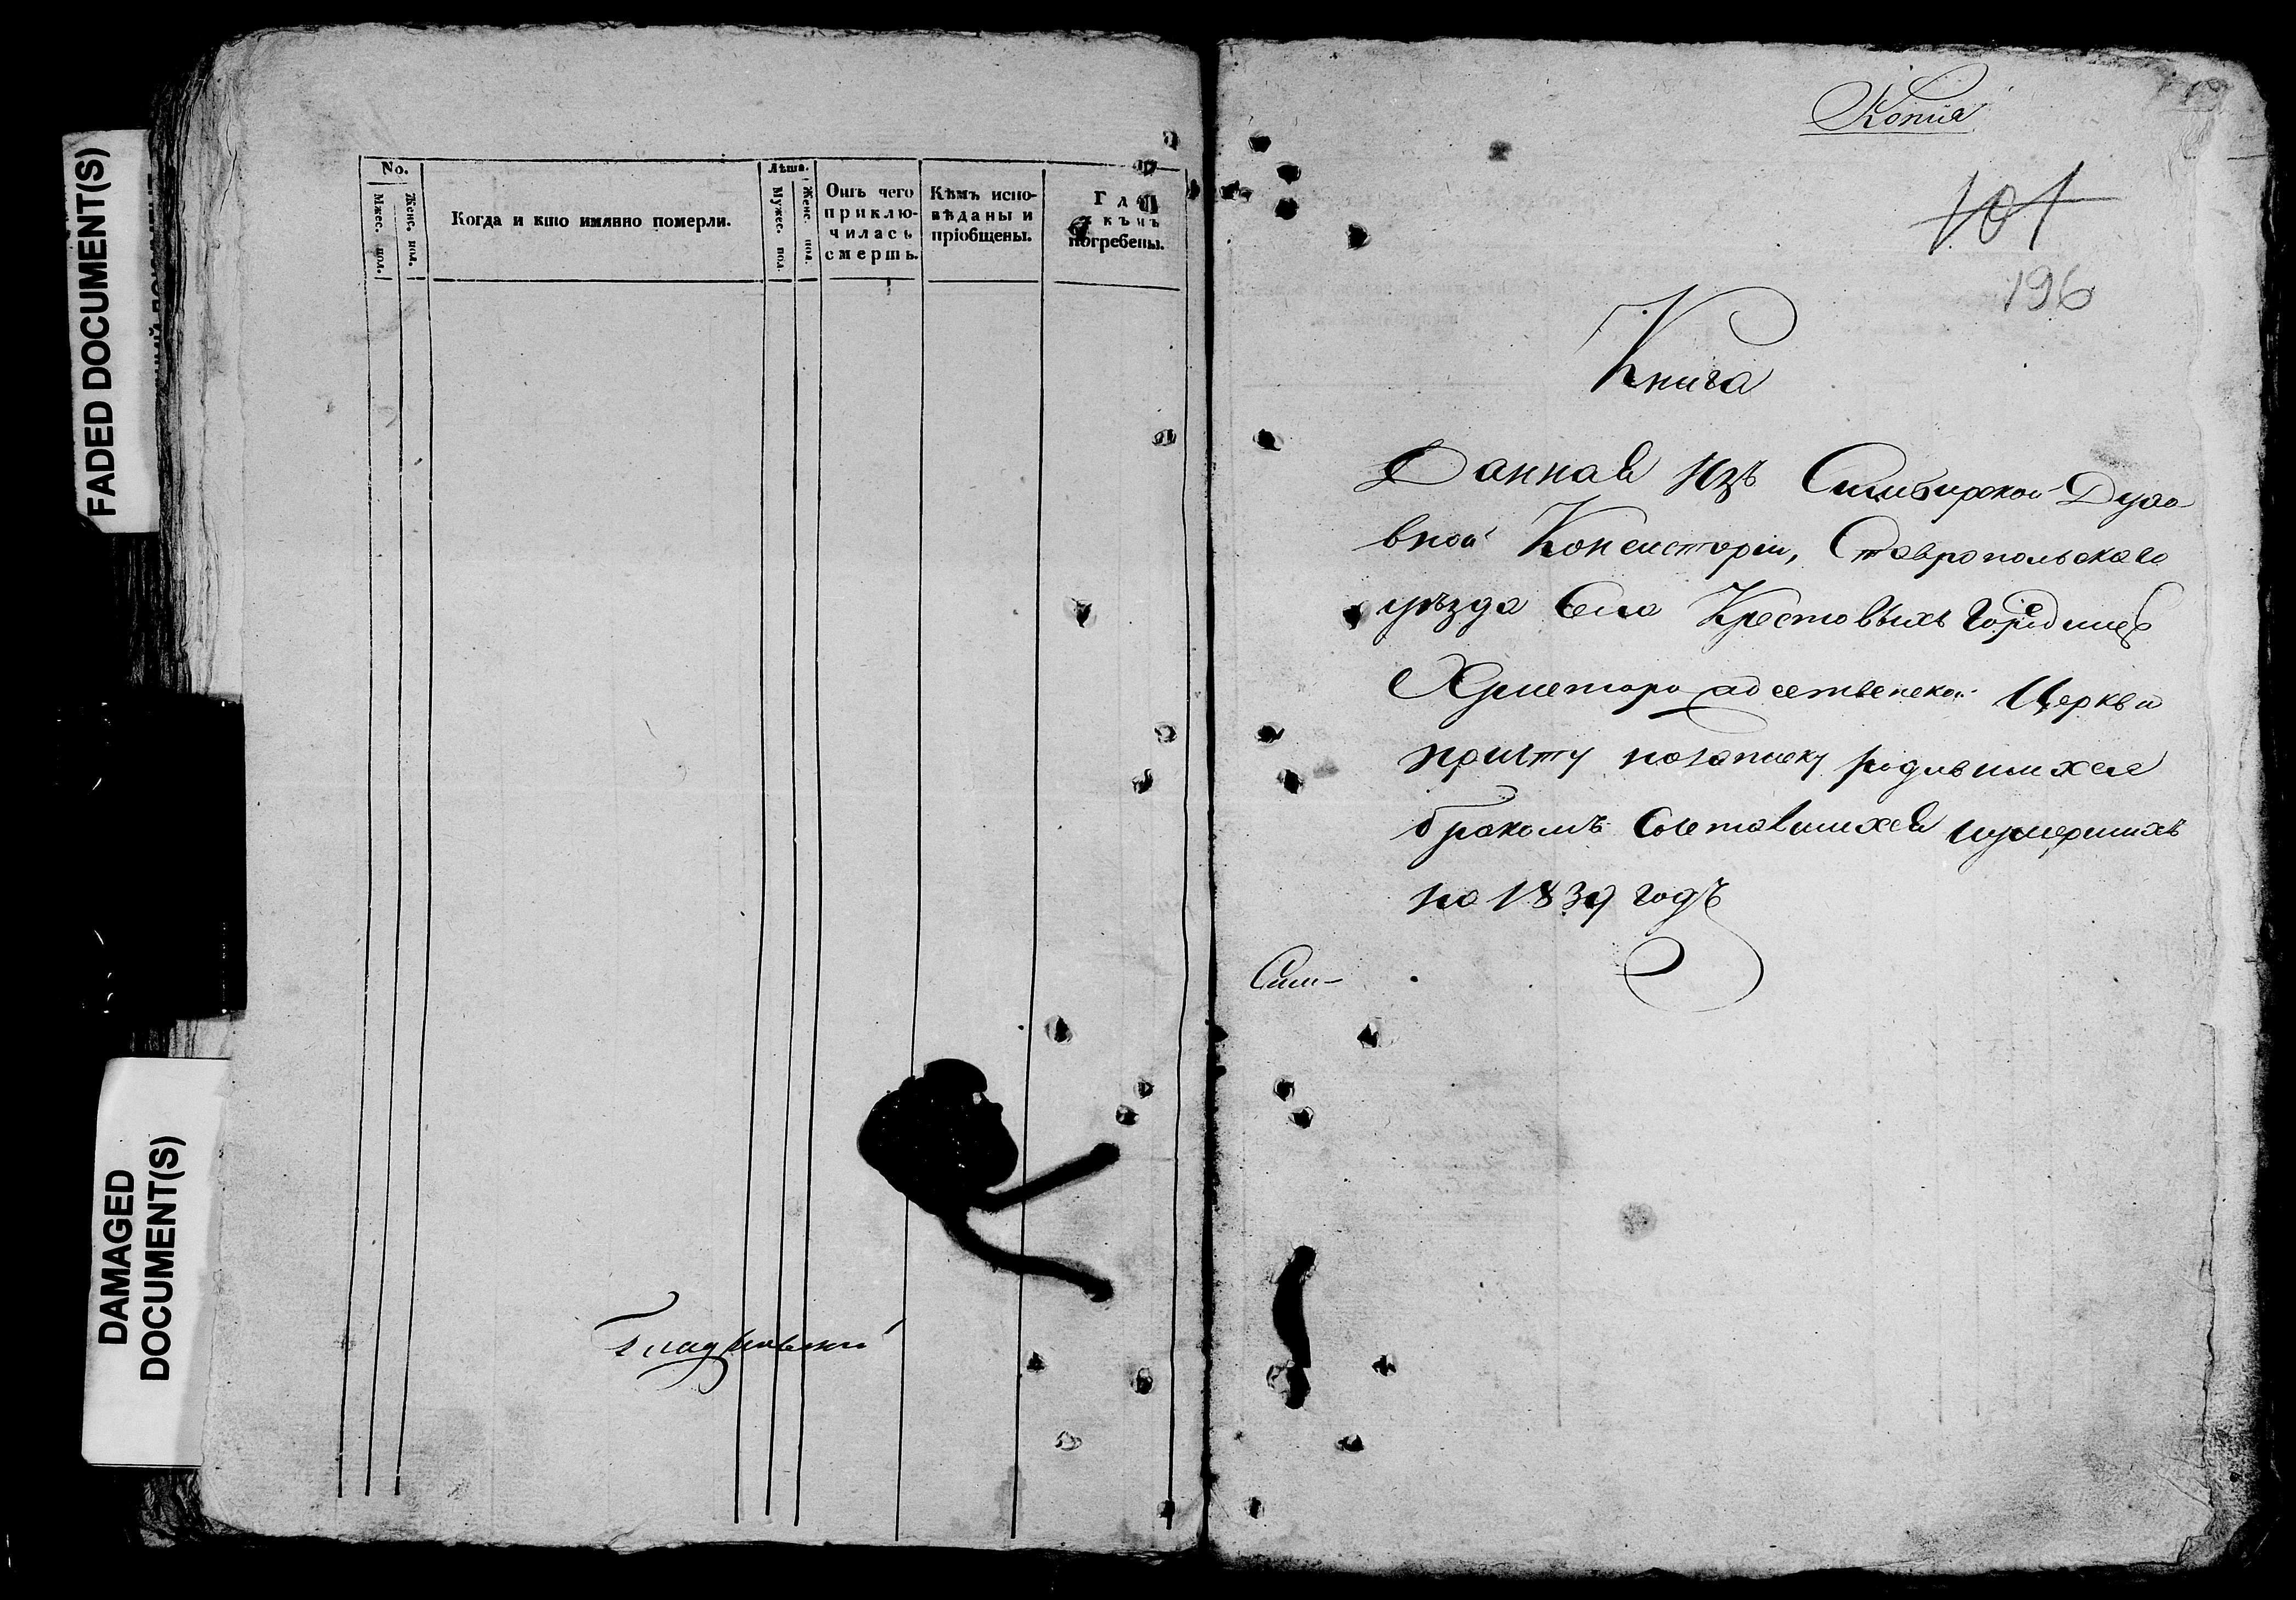 FADED DOCUMENT(S)
DAMAGED
DOCUMENT(S)
No.
Мжес. пол.
Женс. пол.
Когда и кто имянно померли.
Лѣта.
Мужес. пол.
Женс. пол.
Отъ чего
приклю-
чилась
смерть.
Кѣмъ испо-
вѣданы и
пріобщены.
погребены.
Копия
101
196
Книга
Данная Изъ Симбирской Духо
вной Консисторіи, Ставропольскаго
уѣзда Села Крестовыхъ Городищь
Христорождественской Церкви
причту назаписку родившихся
бракомъ Сочетавшихся иумершихъ
на 1839 годъ
Сим-